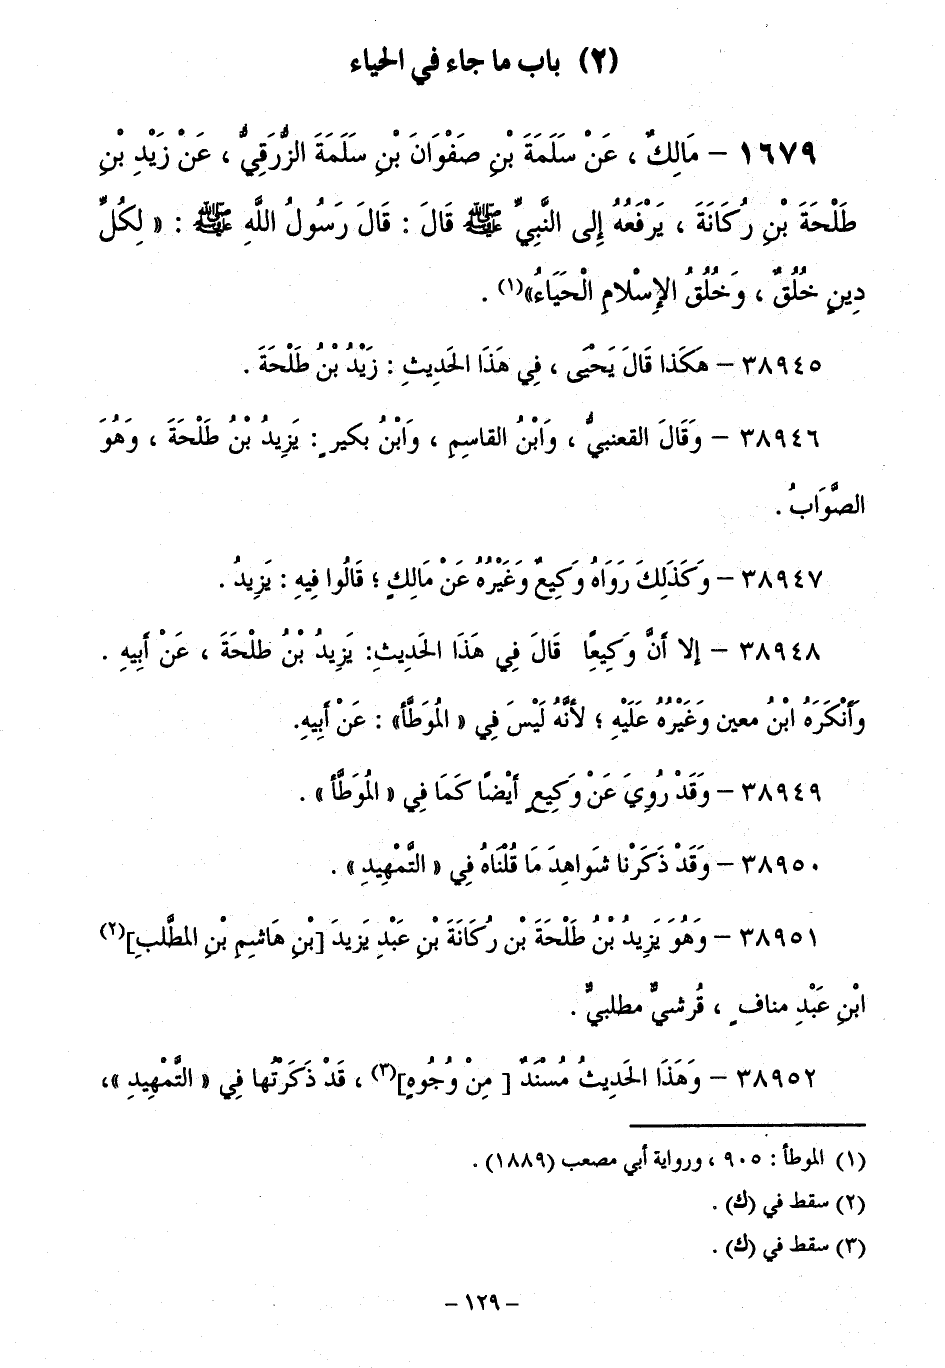 (٢) باب ما جاء في الحياء
١٦٧٩ – مَالِكٌ ، عَنْ سَلَمَةَ بْنِ صَفْوَانَ بْنِ سَلَمَةَ الزُّرَقِيُّ ، عَنْ زَيْدِ بْنِ
طَلْحَةَ بْنِ رُكَانَةَ ، يَرْفَعُهُ إِلى النَّبِيِّ ﷺ قَالَ : قَالَ رَسُولُ اللَّهِ ﷺ : « لِكُلِّ
دِينٍ خُلُقٌ ، وَخُلُقُ الإِسْلامِ الْحَيَاءُ»(١) .
٣٨٩٤٥ – هَكَذا قَالَ يَحْيَى ، فِي هَذَا الحَدِيثِ : زَيْدُ بْنُ طَلْحَةَ .
٣٨٩٤٦ – وَقَالَ القعنبيُّ ، وَابْنُ القاسِمِ ، وَابْنُ بكيرٍ : يَزِيدُ بْنُ طَلْحَةَ ، وَهُوَ
الصَّوَابُ .
٣٨٩٤٧ – وَكَذَلِكَ رَوَاهُ وَكِيعٌ وَغَيْرُهُ عَنْ مَالِكٍ ؛ قَالُوا فِيهِ : يَزِيدُ .
٣٨٩٤٨ – إلا أَنَّ وَكِيعًا قَالَ فِي هَذَا الحَدِيثِ: يَزِيدُ بْنُ طلْحَةَ ، عَنْ أَبِيهِ .
وَأَنْكَرَهُ ابْنُ معين وَغَيْرُهُ عَلَيْهِ ؛ لأَنَّهُ لَيْسَ فِي « المُوَطَّأ» : عَنْ أَبِيهِ.
٣٨٩٤٩ – وَقَدْ رُوِيَ عَنْ وَكِيعٍ أَيْضًا كَمَا فِي « المُوَطَّأ » .
٣٨٩٥٠ – وَقَدْ ذَكَرْنا شَواهِدَ مَا قُلْنَاهُ فِي « التَّمْهِيدِ » .
٣٨٩٥١ – وَهُوَ يَزِيدُ بْنُ طَلْحَةَ بْن رُكَانَةَ بْنِ عَبْدِ يَزِيدَ [بْنِ هَاشِمِ بْنِ المطَّلبِ](٢)
ابْنِ عَبْدِ منافٍ ، قُرشيٌّ مطلبيٌّ .
٣٨٩٥٢ – وَهَذَا الحَدِيثُ مُسْنَدٌ [ مِنْ وُجُوهٍ](٣) ، قَدْ ذَكَرْتُها فِي « التَّمْهِيدِ »،
(١) الموطأ : ٩٠٥ ، ورواية أبي مصعب (١٨٨٩) .
(٢) سقط في (ك) .
(٣) سقط في (ك) .
– ١٢٩ –